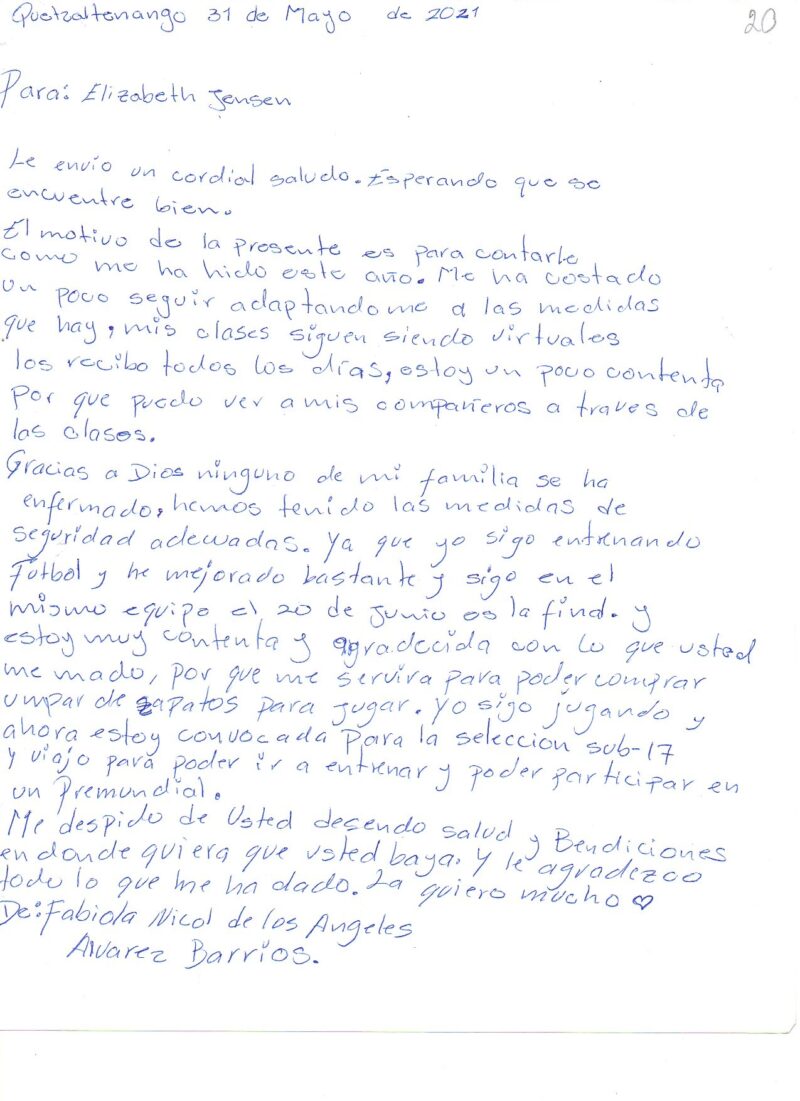 Quetzaltenango 31 de Mayo de 2021
20
Para: Elizabeth Jensen
Le envio un cordial saludo. Esperando que se
encuentre bien.
El motivo de la presente es para contarle
como me ha hido este año. Me ha costado
un poco seguir adaptandome a las medidas
que hay, mis clases siguen siendo virtuales
los recibo todos los días, estoy un poco contenta
por que puedo ver a mis compañeros a traves de
las clases.
Gracias a Dios ninguno de mi familia se ha
enfermado, hemos tenido las medidas de
seguridad adecuadas. Ya que yo sigo entrenando
Fútbol y he mejorado bastante y sigo en el
mismo equipo el 20 de junio es la find. y
estoy muy contenta y agradecida con lo que usted
me mado, por que me servira para poder comprar
umpar de zapatos para jugar. Yo sigo jugando y
ahora estoy convocada para la seleccion sub-17
y viajo para poder ir a entrenar y poder participar en
un Premundial.
Me despido de Usted desendo salud y Bendiciones
en donde quiera que usted baya. Y le agradezco
todo lo que me ha dado. La quiero mucho ♡
De: Fabiola Nicol de los Angeles
Alvarez Barrios.